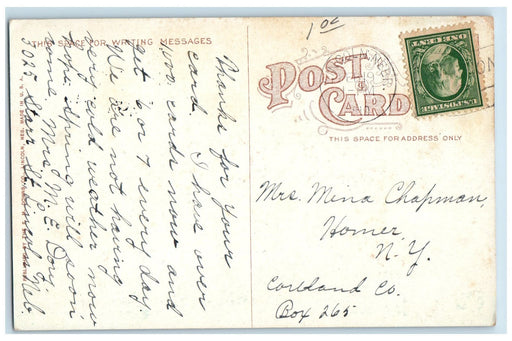 10¢
THIS SPACE FOR WRITING MESSAGES
POST
CARD
THIS SPACE FOR ADDRESS ONLY
Thanks for your
card. I have over
1100 cards now and
get 6 or 7 every day.
We are not having
very cold weather now
hope spring will soon
come Mrs M. E. Doty
3027 Starr St Lincoln Neb.
Mrs. Mina Chapman,
Homer
N. Y.
Cortland Co.
Box 265
U.S. POSTAGE
ONE CENT
NEBR.